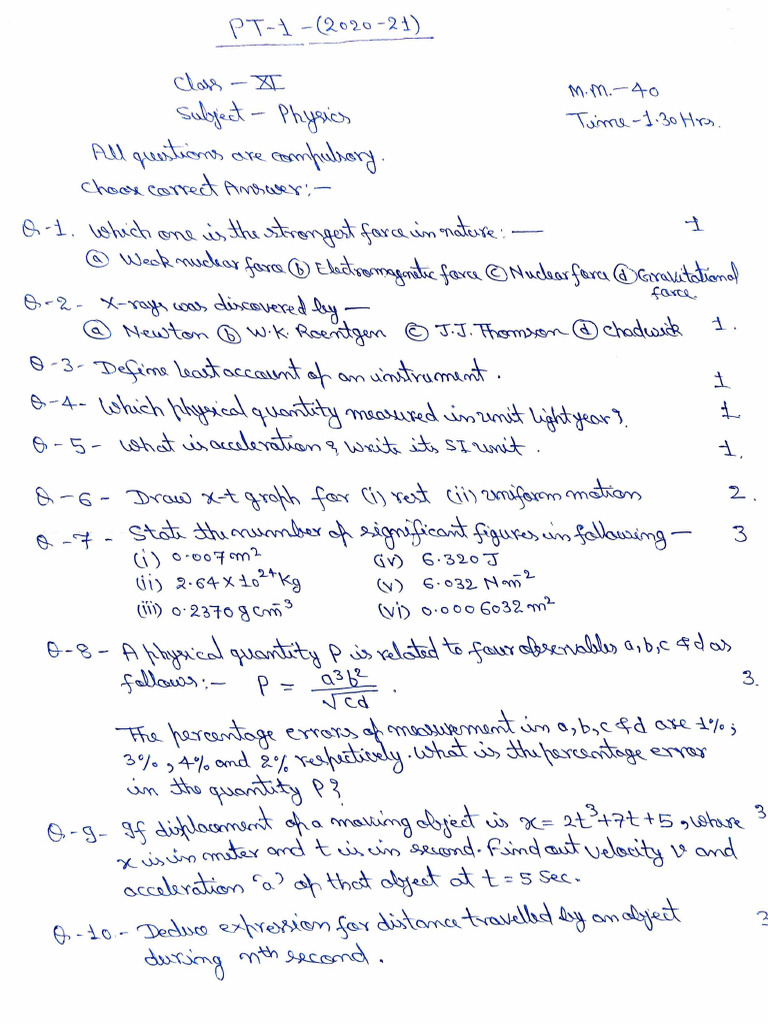 PT-1-(2020-21)
Class - XI
M.M.-40
Subject - Physics
Time-1.30Hrs.
All questions are compulsory.
Choose correct Answer:-
Q-1. Which one is the strongest force in nature:- 1
(a) Weak nuclear force (b) Electromagnetic force (c) Nuclear force (d) Gravitational force.
Q-2- X-rays was discovered by- 1.
(a) Newton (b) W.K. Roentgen (c) J.J. Thomson (d) Chadwick
Q-3- Define least account of an instrument. 1
Q-4- Which physical quantity measured in unit light year? 1
Q-5- What is acceleration? Write its SI unit. 1.
Q-6- Draw x-t graph for (i) rest (ii) uniform motion 2.
Q-7- State the number of significant figures in following- 3
(i) 0.007m² (iv) 6.320J
(ii) 2.64×10²⁴kg (v) 6.032 Nm⁻²
(iii) 0.2370 g cm⁻³ (vi) 0.0006032 m²
Q-8- A physical quantity P is related to four observables a, b, c & d as
follows:- P = a³b²/√cd. 3.
The percentage errors of measurement in a, b, c & d are 1%,
3%, 4% and 2% respectively. What is the percentage error
in the quantity P?
Q-9- If displacement of a moving object is x = 2t³+7t+5, where 3
x is in meter and t is in second. Find out velocity v and
acceleration 'a' of that object at t = 5 sec.
Q-10.- Deduce expression for distance travelled by an object 3
during nth second.